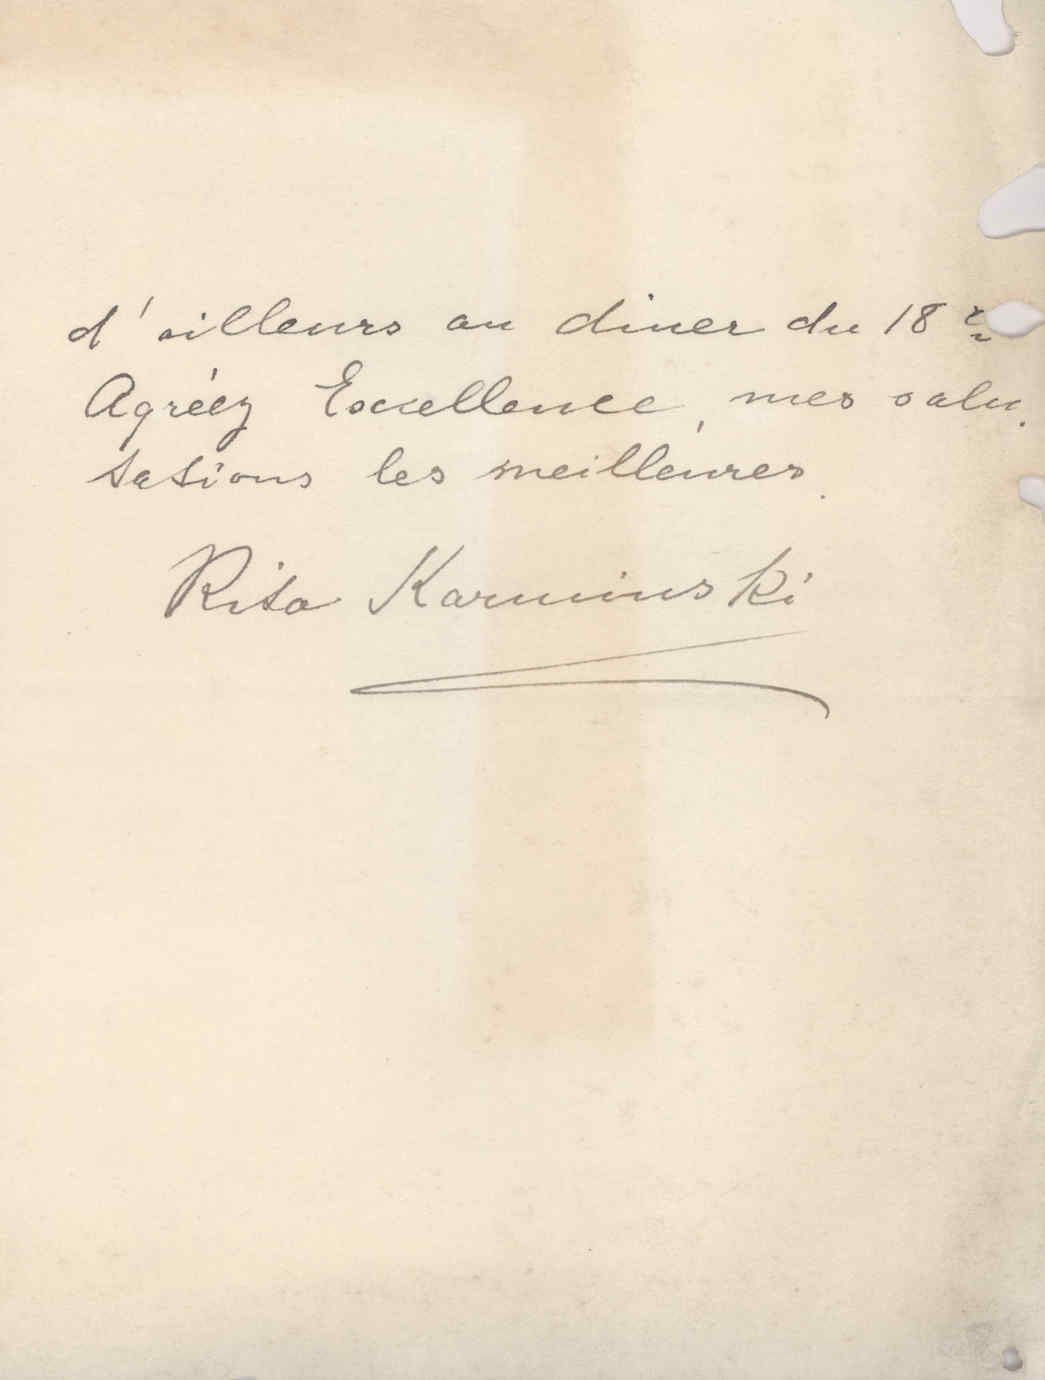 d'ailleurs au diner du 18
Agréez Excellence, mes salu.
tations les meilleures.
Rita Karminski